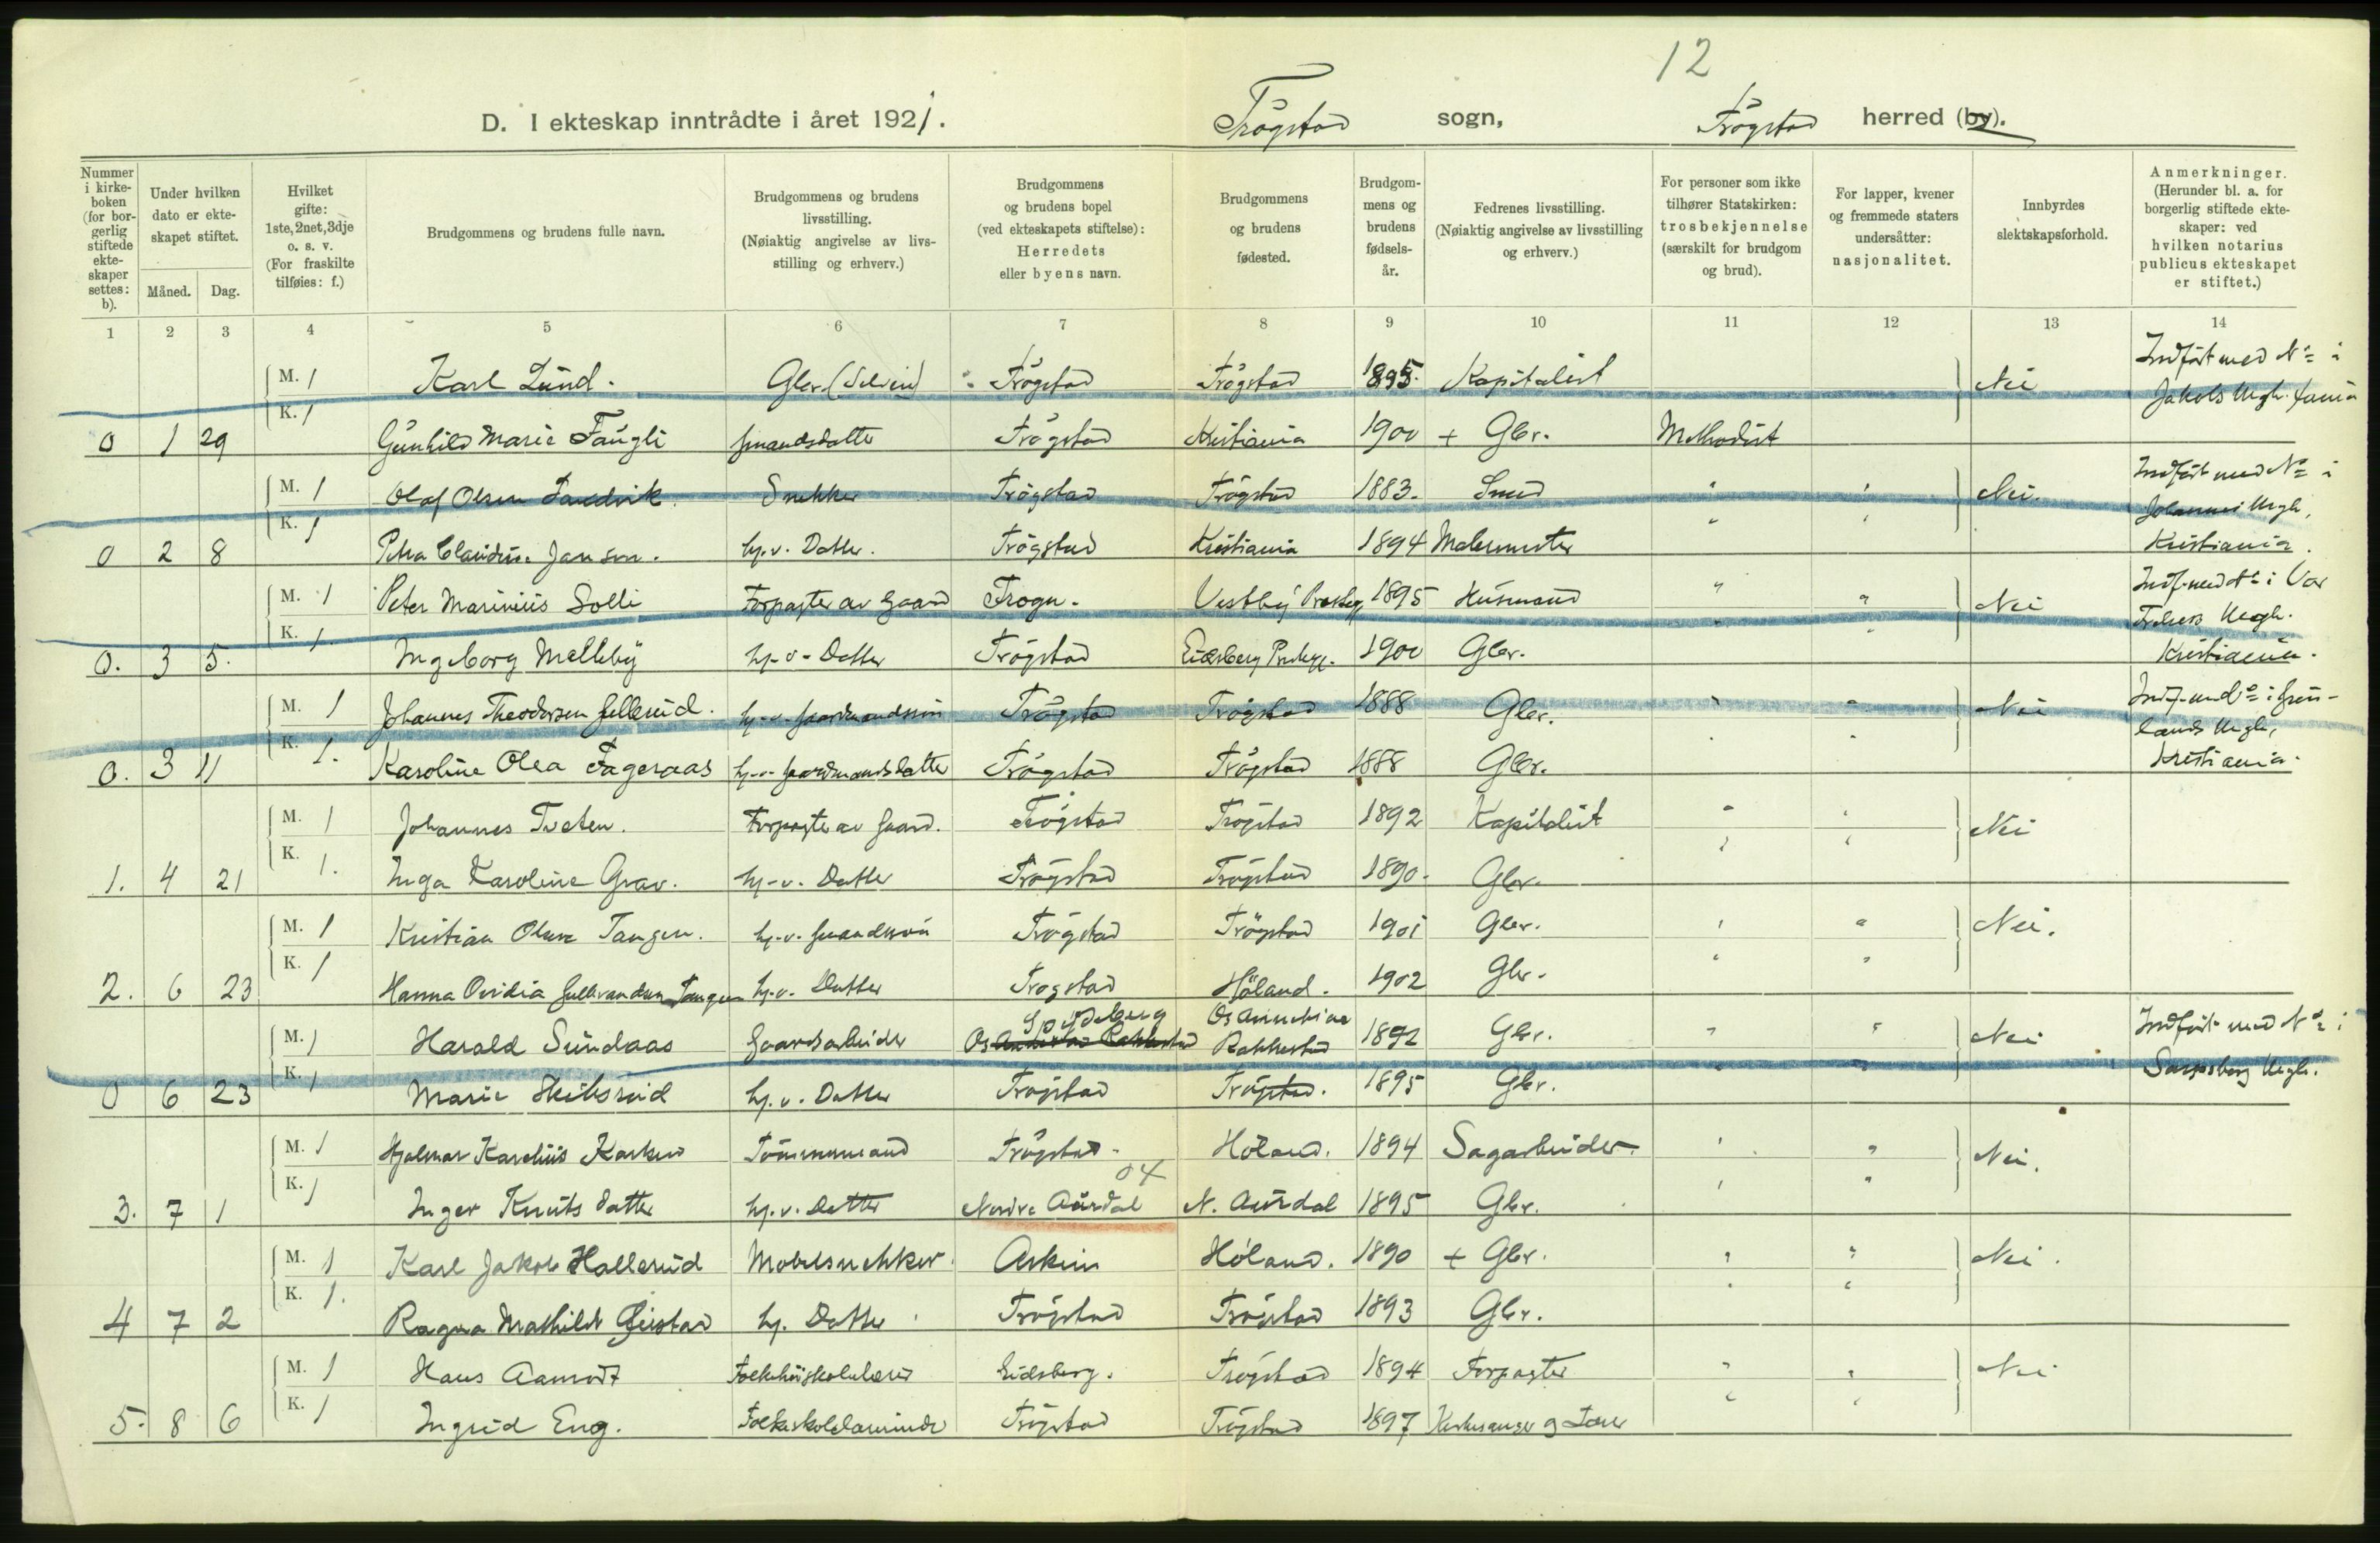 12
D. I ekteskap inntrådte i året 1921. Trøgstad sogn, Trøgstad herred (by).
Nummer i kirkeboken (for borgerlig stiftede ekteskaper settes: b).
Under hvilken dato er ekteskapet stiftet.
Måned. Dag.
Hvilket gifte: 1ste, 2net, 3dje o. s. v. (For fraskilte tilføies: f.)
Brudgommens og brudens fulle navn.
Brudgommens og brudens livsstilling. (Nøiaktig angivelse av livsstilling og erhverv.)
Brudgommens og brudens bopel (ved ekteskapets stiftelse): Herredets eller byens navn.
Brudgommens og brudens fødested.
Brudgommens og brudens fødselsår.
Fedrenes livsstilling. (Nøiaktig angivelse av livsstilling og erhverv.)
For personer som ikke tilhører Statskirken: trosbekjennelse (særskilt for brudgom og brud).
For lapper, kvener og fremmede staters undersåtter: nasjonalitet.
Innbyrdes slektskapsforhold.
Anmerkninger. (Herunder bl. a. for borgerlig stiftede ekteskaper: ved hvilken notarius publicus ekteskapet er stiftet.)
1 2 3 4 5 6 7 8 9 10 11 12 13 14
M. 1 Karl Lund. Gbr. (Selveier) Trøgstad Trøgstad 1895. Kapitalist Nei Indført med No i Jakobs Mgh.
0 1 29 K. 1 Gunhild Marie Faugli Trøgstad Kristiania 1900 + Gbr. Methodist
M. 1 Olaf Olsen Sandvik. Snekker Trøgstad Trøgstad 1883. Smed " " Nei. Indført med No i Johannes Mgh, Kristiania.
0 2 8 K. 1 Petra Claudine Janson. hj.v. Datter. Trøgstad Kristiania 1894 Malermester " "
M. 1 Peter Marinius Solli Forpagter av Gaard Frogn. Vestby Prestegj. 1895 Husmand " " Nei Indf. med No i Vor Frelsers Mgh. Kristiania.
0. 3 5. K. 1. Ingeborg Melleby hj-v- Datter Trøgstad Eidsberg Prestegj. 1900 Gbr. " "
M. 1 Johannes Theodorsen Gullerud. hj-v- Gaardmandssøn Trøgstad Trøgstad 1888 Gbr. " " Nei Indf. med No i Grønlands Mgh, Kristiania.
0. 3 11 K. 1. Karoline Olea Fageraas hj-v- Gaardmandsdatter Trøgstad Trøgstad 1888 Gbr. " "
M. 1 Johannes Tveten. Forpagter av Gaard. Trøgstad Trøgstad 1892 Kapitalist " " Nei
1. 4 21 K. 1. Inga Karoline Grav. hj-v. Datter Trøgstad Trøgstad 1890. Gbr. " "
M. 1 Kristian Olsen Tangen. hj.v. Trøgstad Trøgstad 1901 Gbr. " " Nei.
2. 6 23 K. 1 Hanna Ovidia Tangen hj.v. Datter Trøgstad Høland. 1902 Gbr. " "
M. 1 Harald Sundaas Gaardsarbeider Spydeberg Rakkestad Os Rakkestad 1892 Gbr. " " Nei Indført med No i Sarpsborg Mgh.
0 6 23 K. 1 Marie Skibsrud hj.v. Datter Trøgstad Trøgstad. 1895 Gbr. " "
M. 1 Hjalmar Karelius Karlsen Tømmermand Trøgstad. Høland. 1894 Sagarbeider. " " Nei.
04
3. 7 1 K. 1 Inger Knutsdatter hj.v. Datter Nordre Aurdal N. Aurdal 1895 Gbr. " "
M. 1 Karl Jakob Hallerud Møbelsnekker. Askim Høland. 1890 + Gbr. " " Nei.
4 7 2 K. 1. Ragna Mathilde hj. Datter Trøgstad Trøgstad 1893 Gbr. " "
M. 1 Hans Aamodt Folkehøiskolelærer Eidsberg. Trøgstad 1894 Forpagter " " Nei
5. 8 6 K. 1 Ingrid Eng. Folkeskolelærerinde Trøgstad Trøgstad 1897 Kirkesanger og Lærer " "